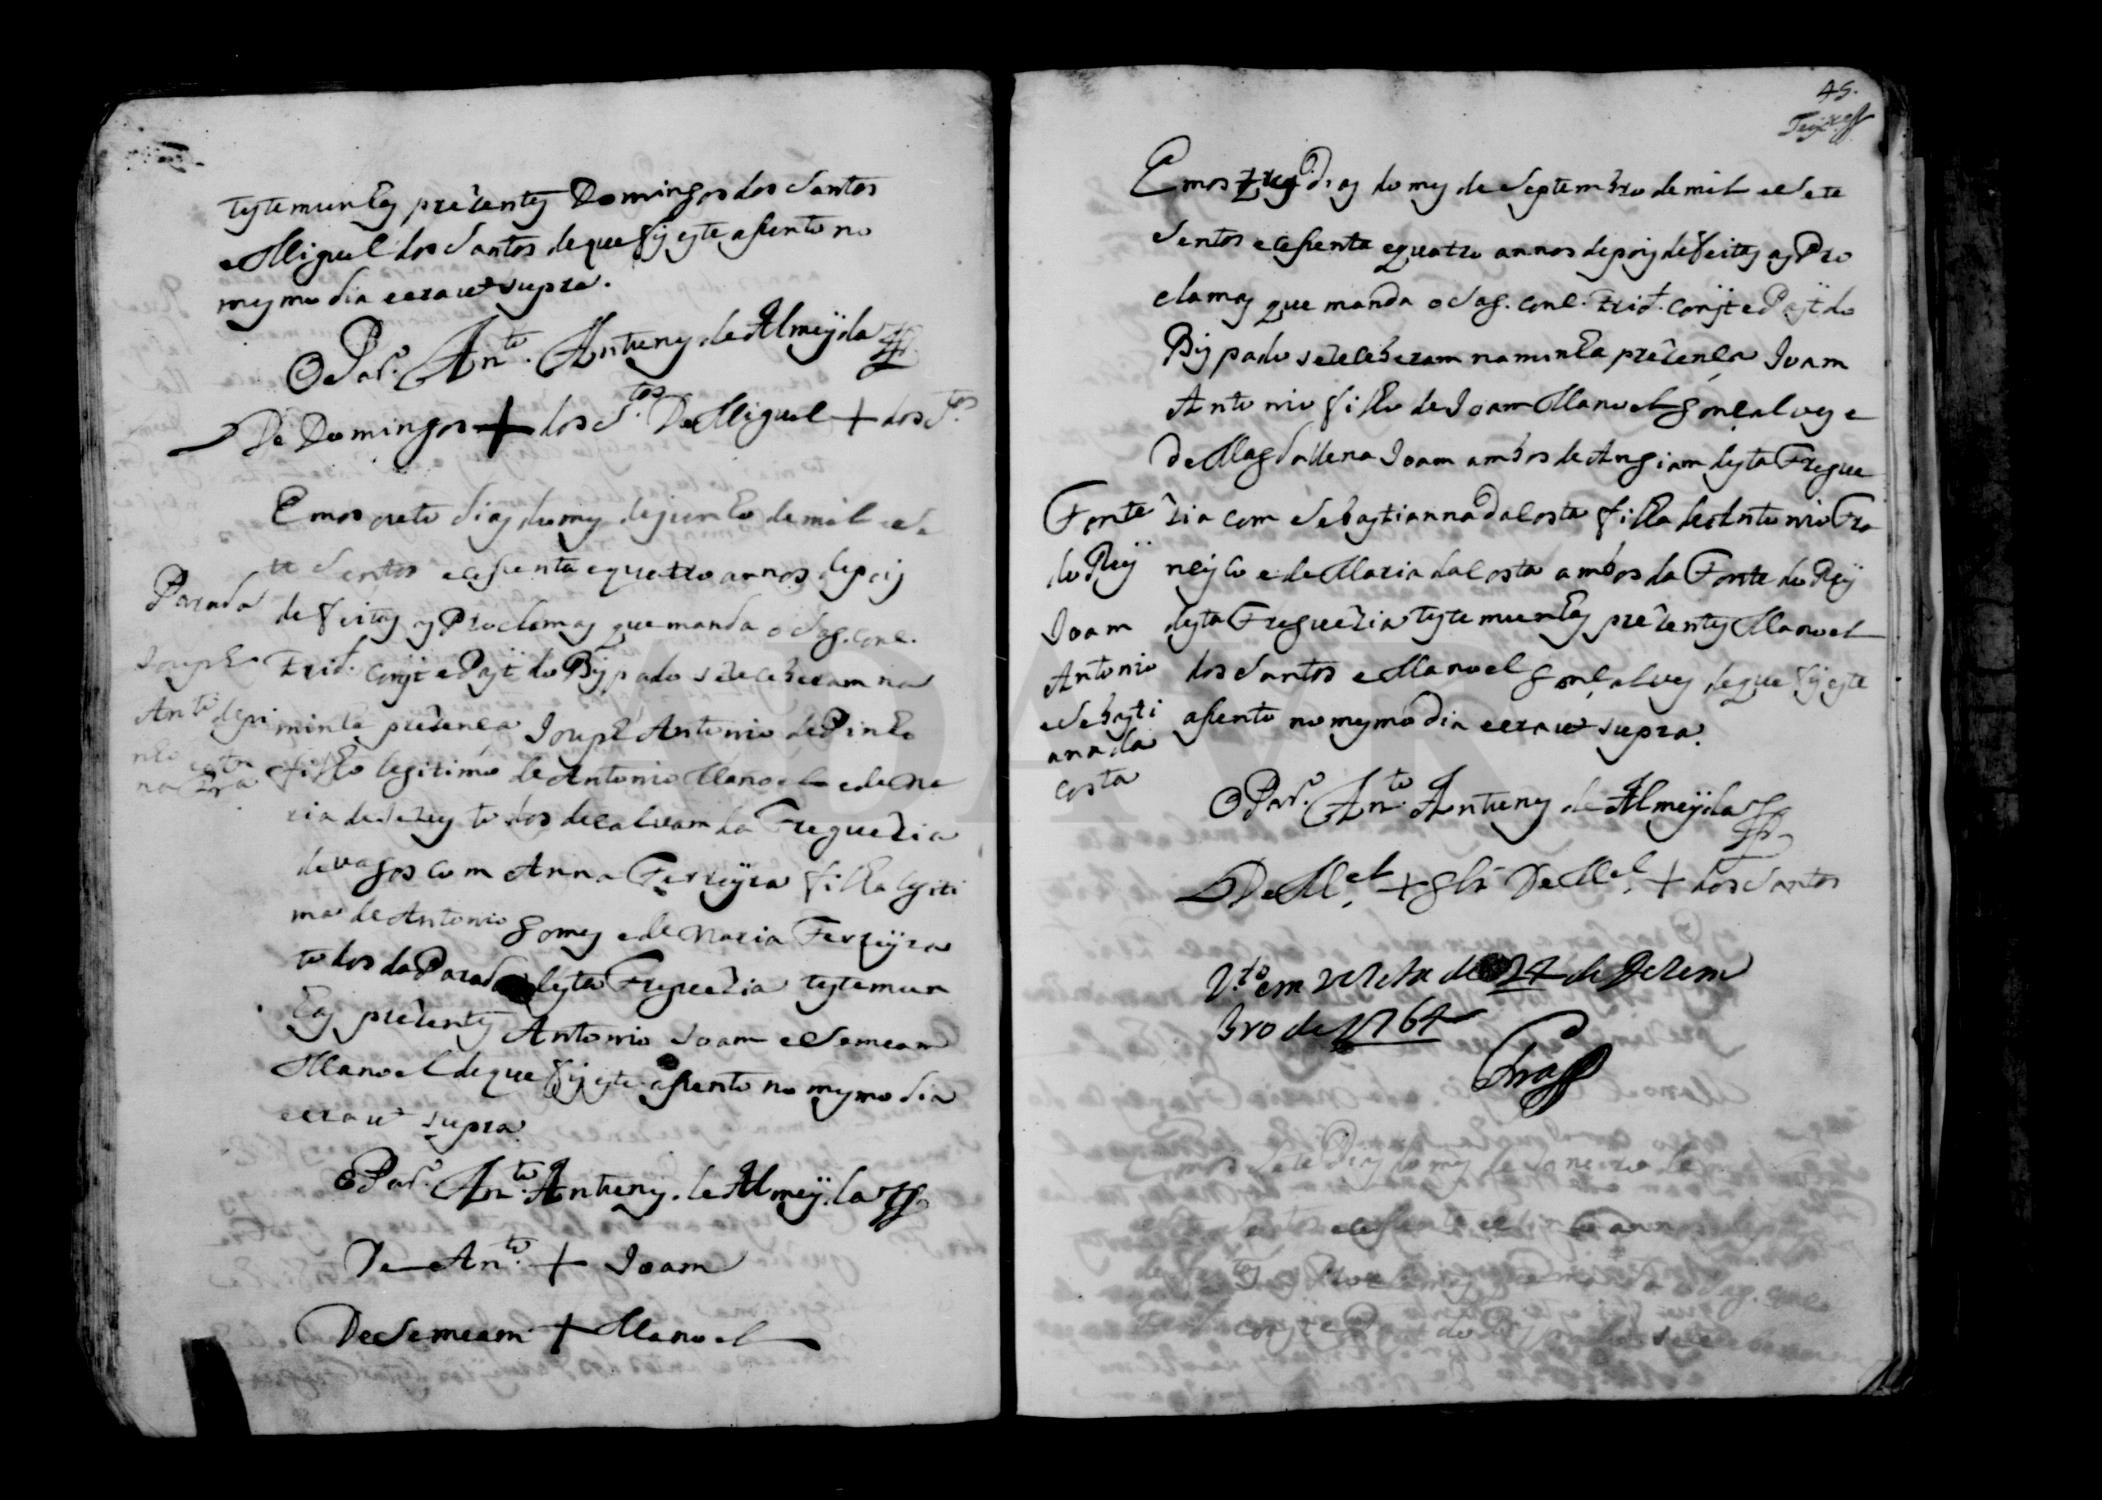 testemunhas prezentes Domingos dos Santos
e Miguel dos Santos de que fis este asento no
mesmo dia e era ut supra.
O Par.º An.to Antunes de Almeyda
De Domingos + dos S.tos De Miguel + dos S.tos
Em os outo dias do mes de junho de mil e se
te sentos e cesenta e quatro annos depois
de feitas as Proclamas que manda o Sag. Conc.
Trid.t Const e Past do Bispado se receberam na
minha prezença Joseph Antonio de Pinho
filho legitimo de Antonio Manoel e de Ma
ria de todos de Calvam da Freguezia
de Vagos com Anna Ferreyra filha legiti
ma de Antonio Gomes e de Maria Ferreyra
todos da Parada desta Freguezia testemun
has prezentes Antonio Joam e Semeam
Manoel de que fis este asento no mesmo dia
e era ut supra.
O Par.º An.to Antunes de Almeyda
De An.to + Joam
De Semeam + Manoel
Parada
Joseph
An.to de pi
nho e An
na Frra
45.
Em os tres dias do mes de Septembro de mil e Sete
Sentos e cesenta e quatro annos depois de feitas as Pro
clamas que manda o Sag. Conc. Trid.t Const e Past do
Bispado se receberam na minha prezença Joam
Antonio filho de Joam Manoel Gonçalves e
de Magdallena Joam ambos de Angiam desta Fregue
zia com Sebastianna da Costa filha de Antonio Fra
ncisco e de Maria da Costa ambos da Fonte do Rey
desta Freguezia testemunhas prezentes Manoel
dos Santos e Manoel Gonçalves de que fis este
asento no mesmo dia e era ut supra.
O Par.º An.to Antunes de Almeyda
De M.el + Glz De M.el + dos Santos
Fonte
do Rey
Joam
Antonio
e Sebasti
ana da
Costa
V.to em vezita de 24 de Dezem
bro de 1764
ADAVR